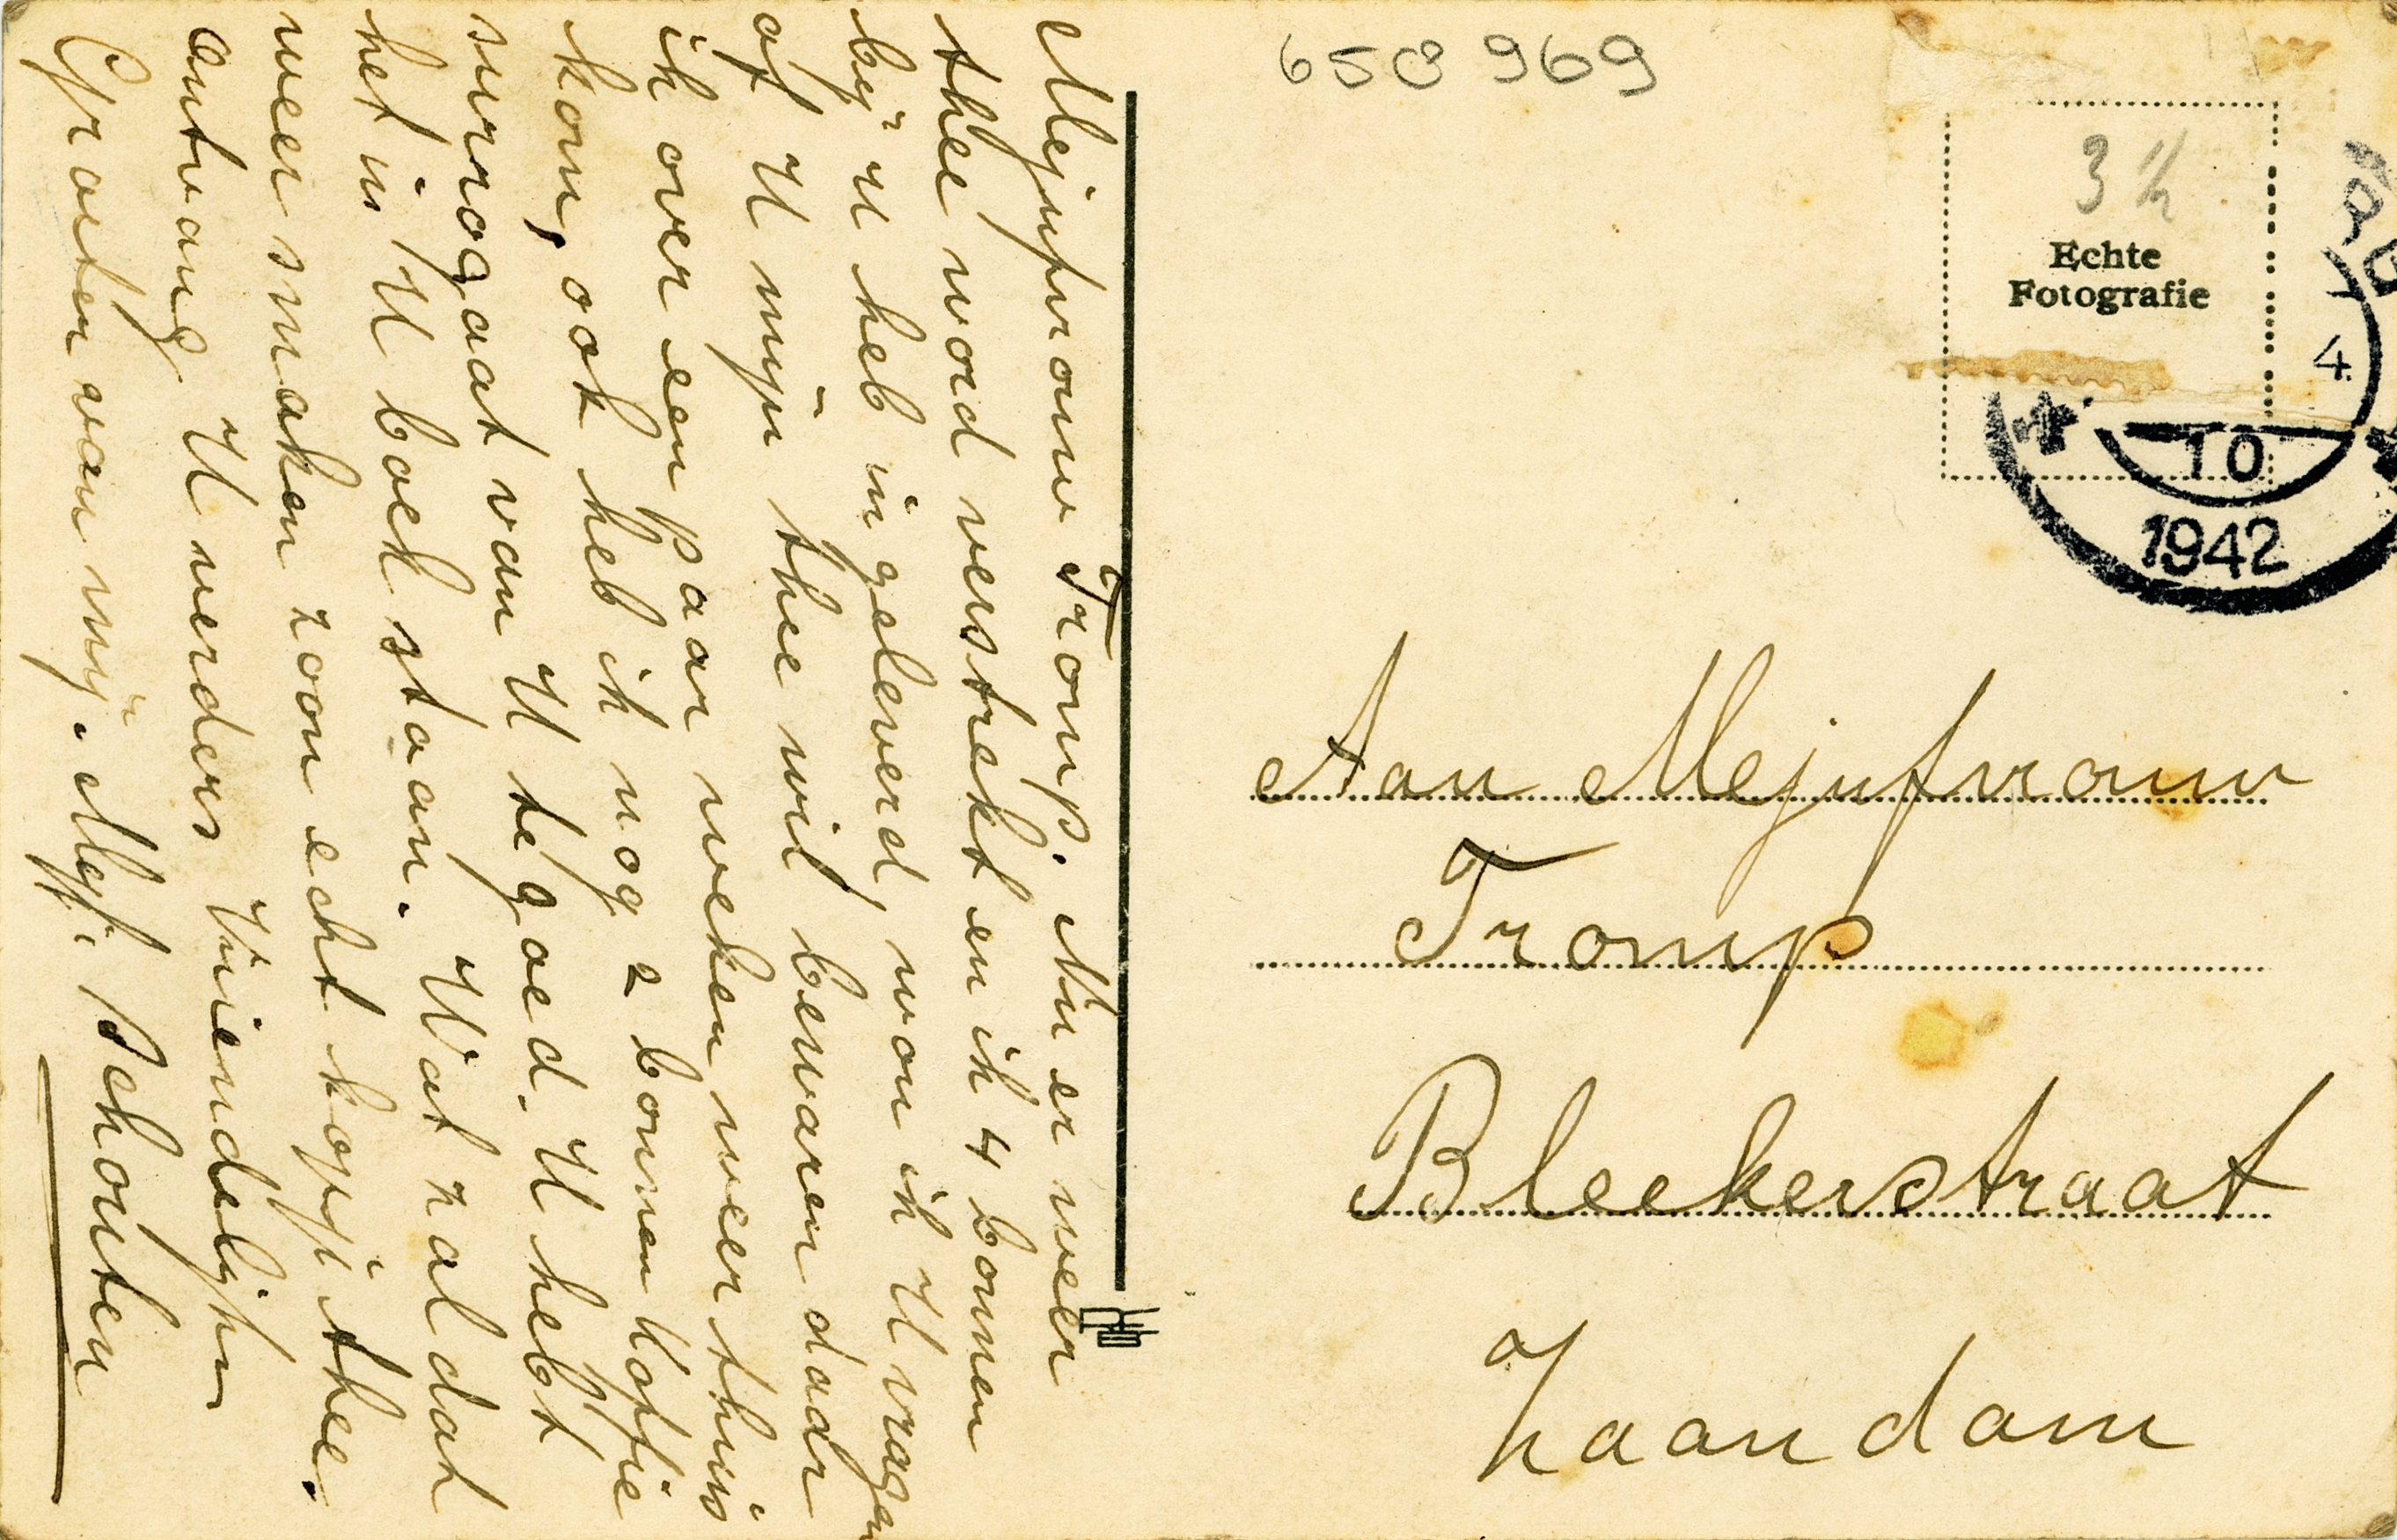 Mejufrouw Tromp. Nu er weer
thee word verstrekt en ik 4 bonnen
bij U heb ingeleverd, won ik U vragen
of U mijn thee wil bewaren daar
ik over een paar weken weer thuis
kom, ook heb ik nog 2 bonnen koffie
surrogaat van U tegoed. U hebt
het in U boek staan. Wat zal dat
weer smaken zoon echt kopje thee.
Ontvang U verders Vriendelijke
Grouten van mij. Mejf. Schouten
650 969
3 1/2
Echte
Fotografie
4
10
1942
Aan Mejufvrouw
Tromp
Bleekerstraat
Zaandam